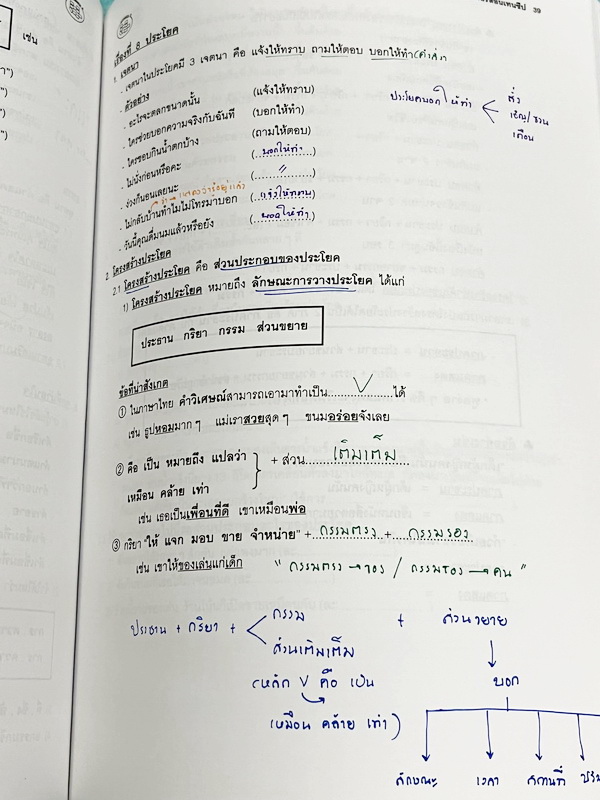 39
เช่น
เรื่องที่ 8 ประโยค
1. เจตนา
- เจตนาในประโยคมี 3 เจตนา คือ แจ้งให้ทราบ ถามให้ตอบ บอกให้ทำ (คำสั่ง
ประโยคบอกให้ทำ
สั่ง
เชิญ/ชวน
เตือน
ตัวอย่าง
- อะไรจะตลกขนาดนั้น (แจ้งให้ทราบ)
- ใครช่วยบอกความจริงกับฉันที (บอกให้ทำ)
- ใครชอบกินน้ำตกบ้าง (ถามให้ตอบ)
- ไม่นั่งก่อนหรือคะ (บอกให้ทำ)
- ง่วงก็นอนเลยนะ (〃)
- ไม่กลับบ้านทำไมไม่โทรมาบอก (แจ้งให้ทราบ)
- วันนี้คุณดื่มนมแล้วหรือยัง (บอกให้ทำ)
2. โครงสร้างประโยค
2.1 โครงสร้างประโยค คือ ส่วนประกอบของประโยค
1) โครงสร้างประโยค หมายถึง ลักษณะการวางประโยค ได้แก่
ประธาน กริยา กรรม ส่วนขยาย
ข้อที่น่าสังเกต
① ในภาษาไทย คำวิเศษณ์สามารถเอามาทำเป็น V ได้
เช่น ธูปหอมมาก ๆ แม่เราสวยสุด ๆ ขนมอร่อยจังเลย
② คือ เป็น หมายถึง แปลว่า
เหมือน คล้าย เท่า
+ ส่วน เติมเต็ม
เช่น เธอเป็นเพื่อนที่ดี เขาเหมือนพ่อ
③ กริยา "ให้ แจก มอบ ขาย จำหน่าย" + กรรมตรง + กรรมรอง
เช่น เขาให้ของเล่นแก่เด็ก " กรรมตรง → ของ / กรรมรอง → คน "
ประธาน + กริยา + กรรม + ส่วนขยาย
ส่วนเติมเต็ม
(หลัก V คือ เป็น
บอก
(เหมือน คล้าย เท่า)
ลักษณะ เวลา สถานที่